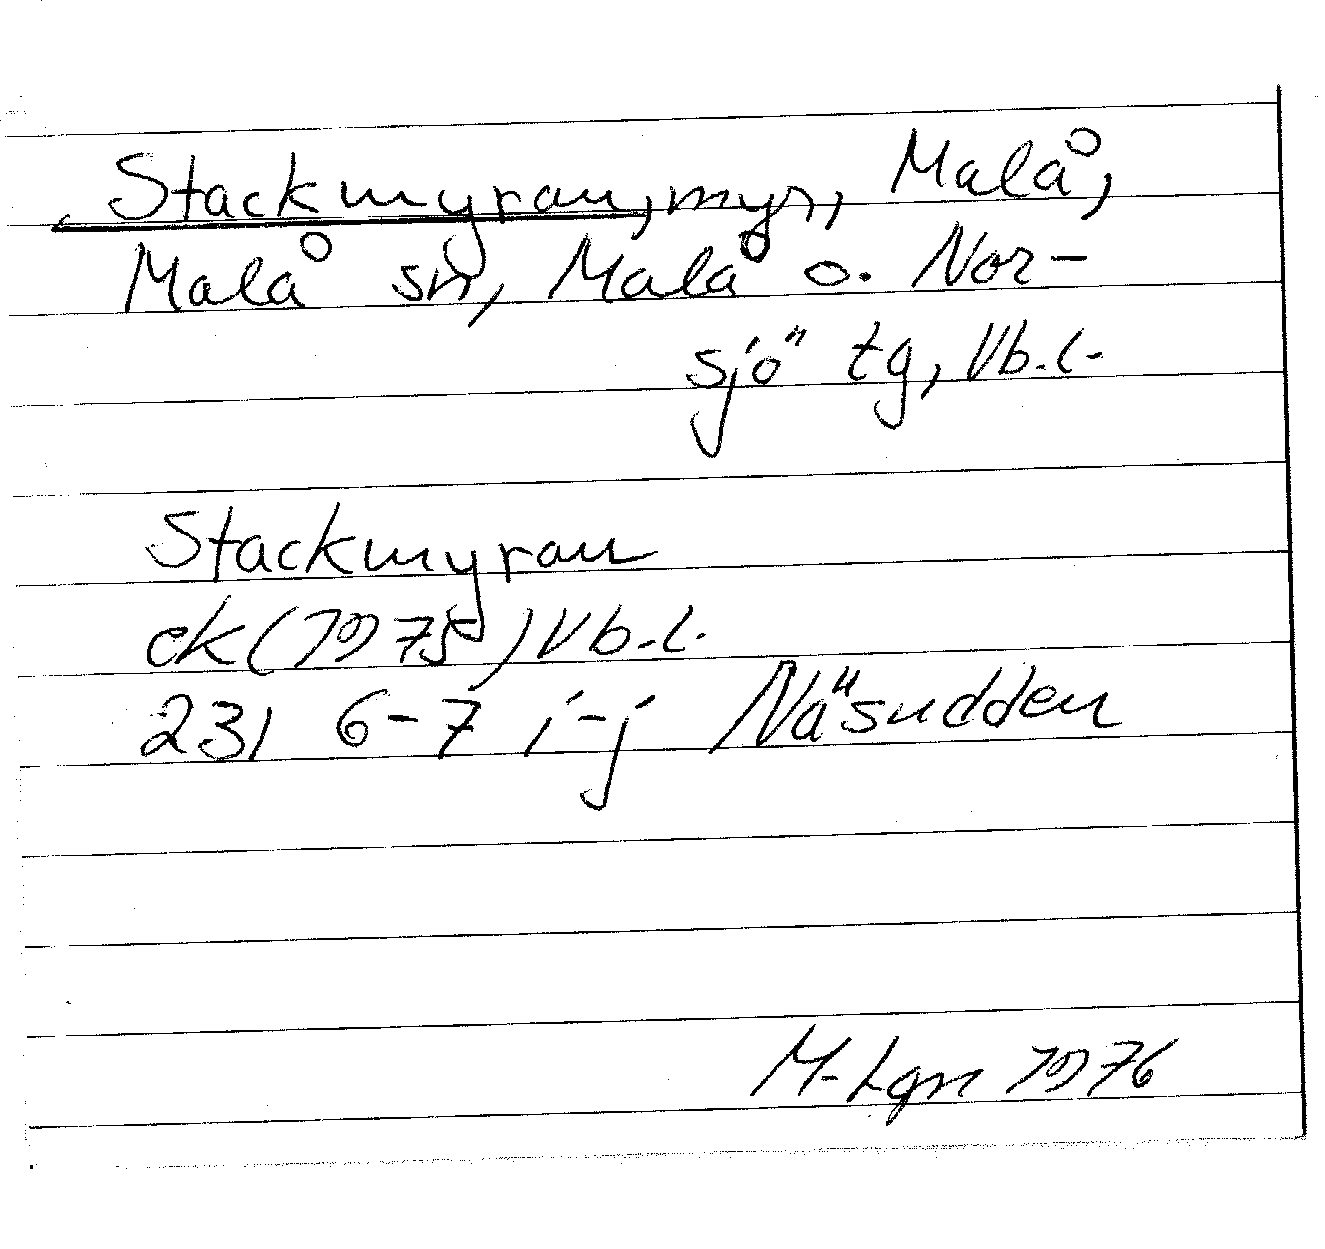 Stackmyran, myr, Malå,
Malå sn, Malå o. Nor-
sjö tg, Vb.l.
Stackmyran
ek (1975) Vb.l.
231 6-7 i-j Näsudden
M-Lgn 1976